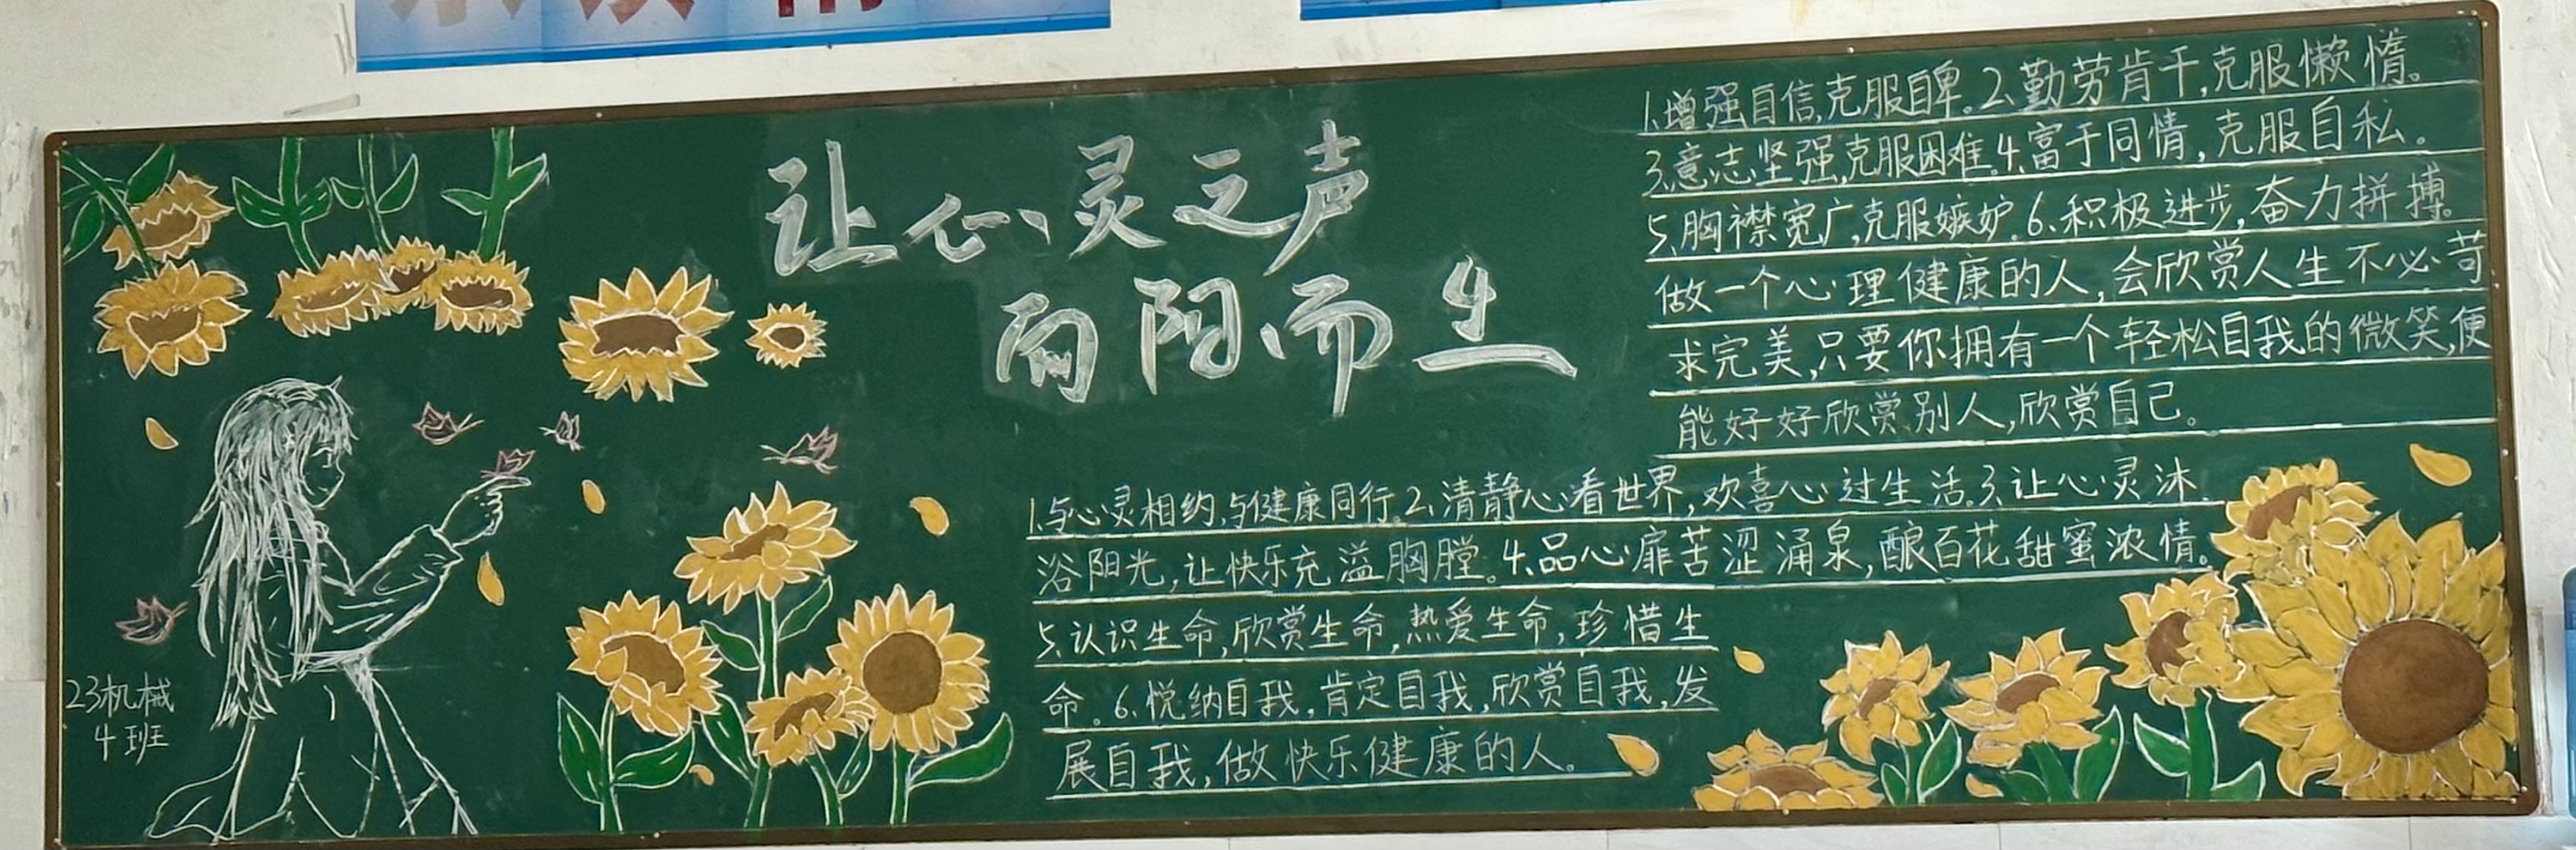 让心灵之声
向阳而生
1、增强自信,克服自卑。2、勤劳肯干,克服懒惰。
3、意志坚强,克服困难。4、富于同情,克服自私。
5、胸襟宽广,克服嫉妒。6、积极进步,奋力拼搏。
做一个心理健康的人,会欣赏人生不必苛
求完美,只要你拥有一个轻松自我的微笑,便
能好好欣赏别人,欣赏自己。
1、与心灵相约,与健康同行。2、清静心看世界,欢喜心过生活。3、让心灵沐
浴阳光,让快乐充溢胸膛。4、品心扉苦涩涌泉,酿百花甜蜜浓情。
5、认识生命,欣赏生命,热爱生命,珍惜生
命。6、悦纳自我,肯定自我,欣赏自我,发
展自我,做快乐健康的人。
23机械
4班